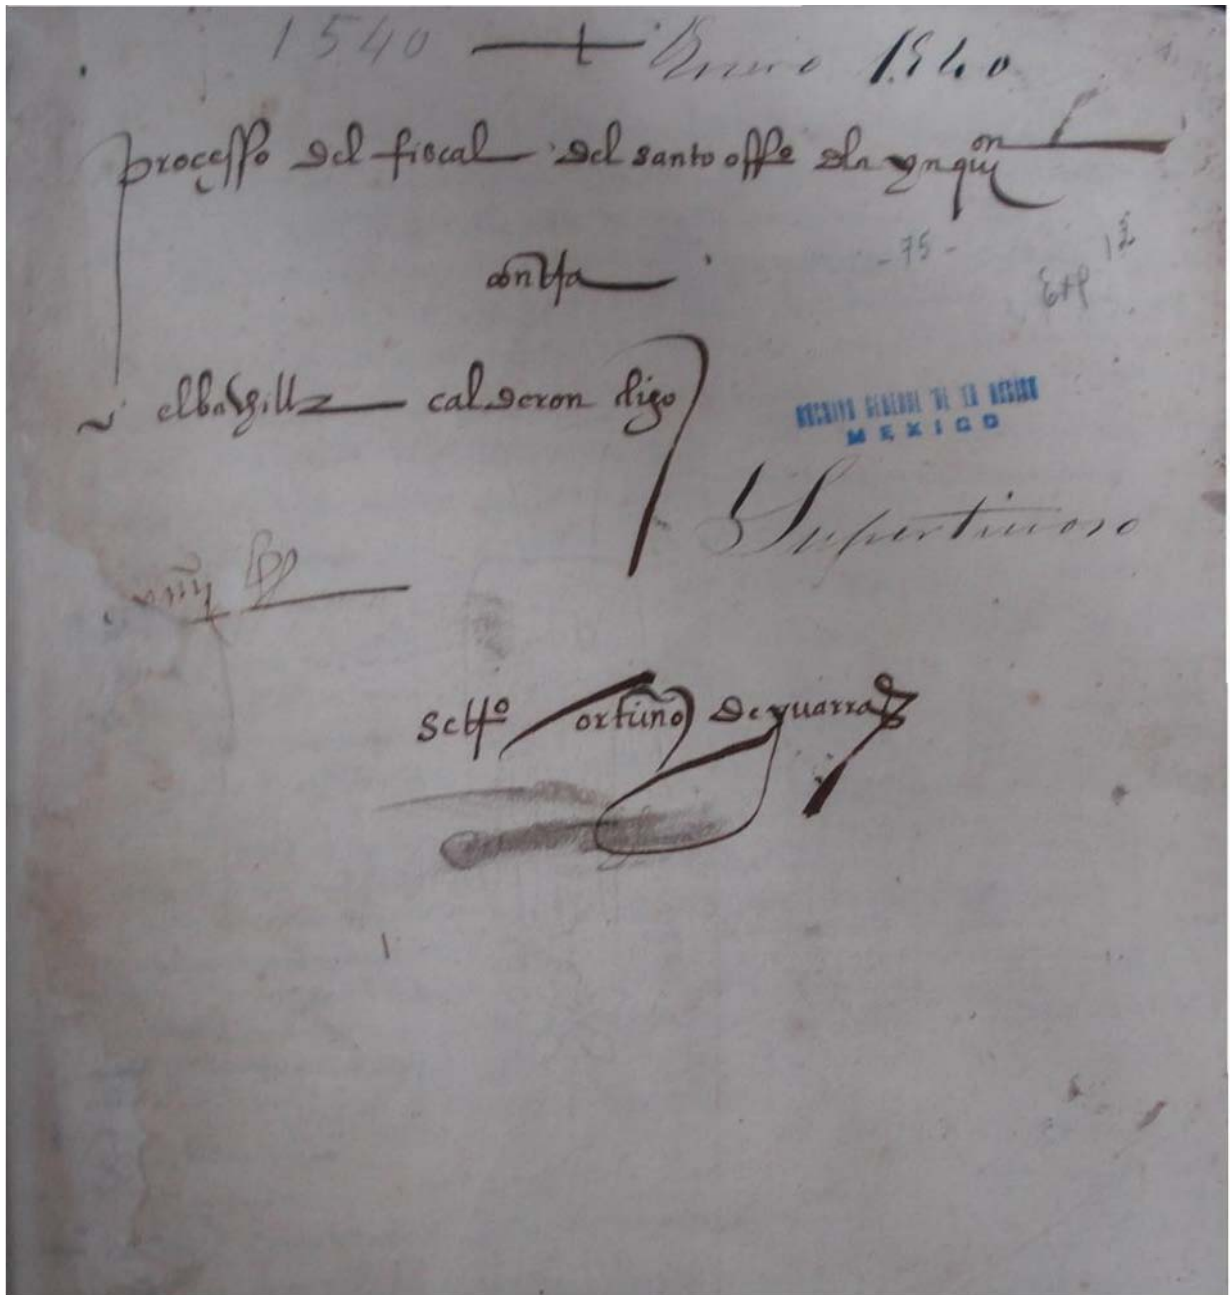 1540 Enero 1540
proçesso del fiscal del santo offo dla ynqui on
- 75 -
contra
Exp 1
el bachiller calderon digo
ARCHIVO GENERAL DE LA NACION
MEXICO
Supersticioso
secrº ortuño de ybarra